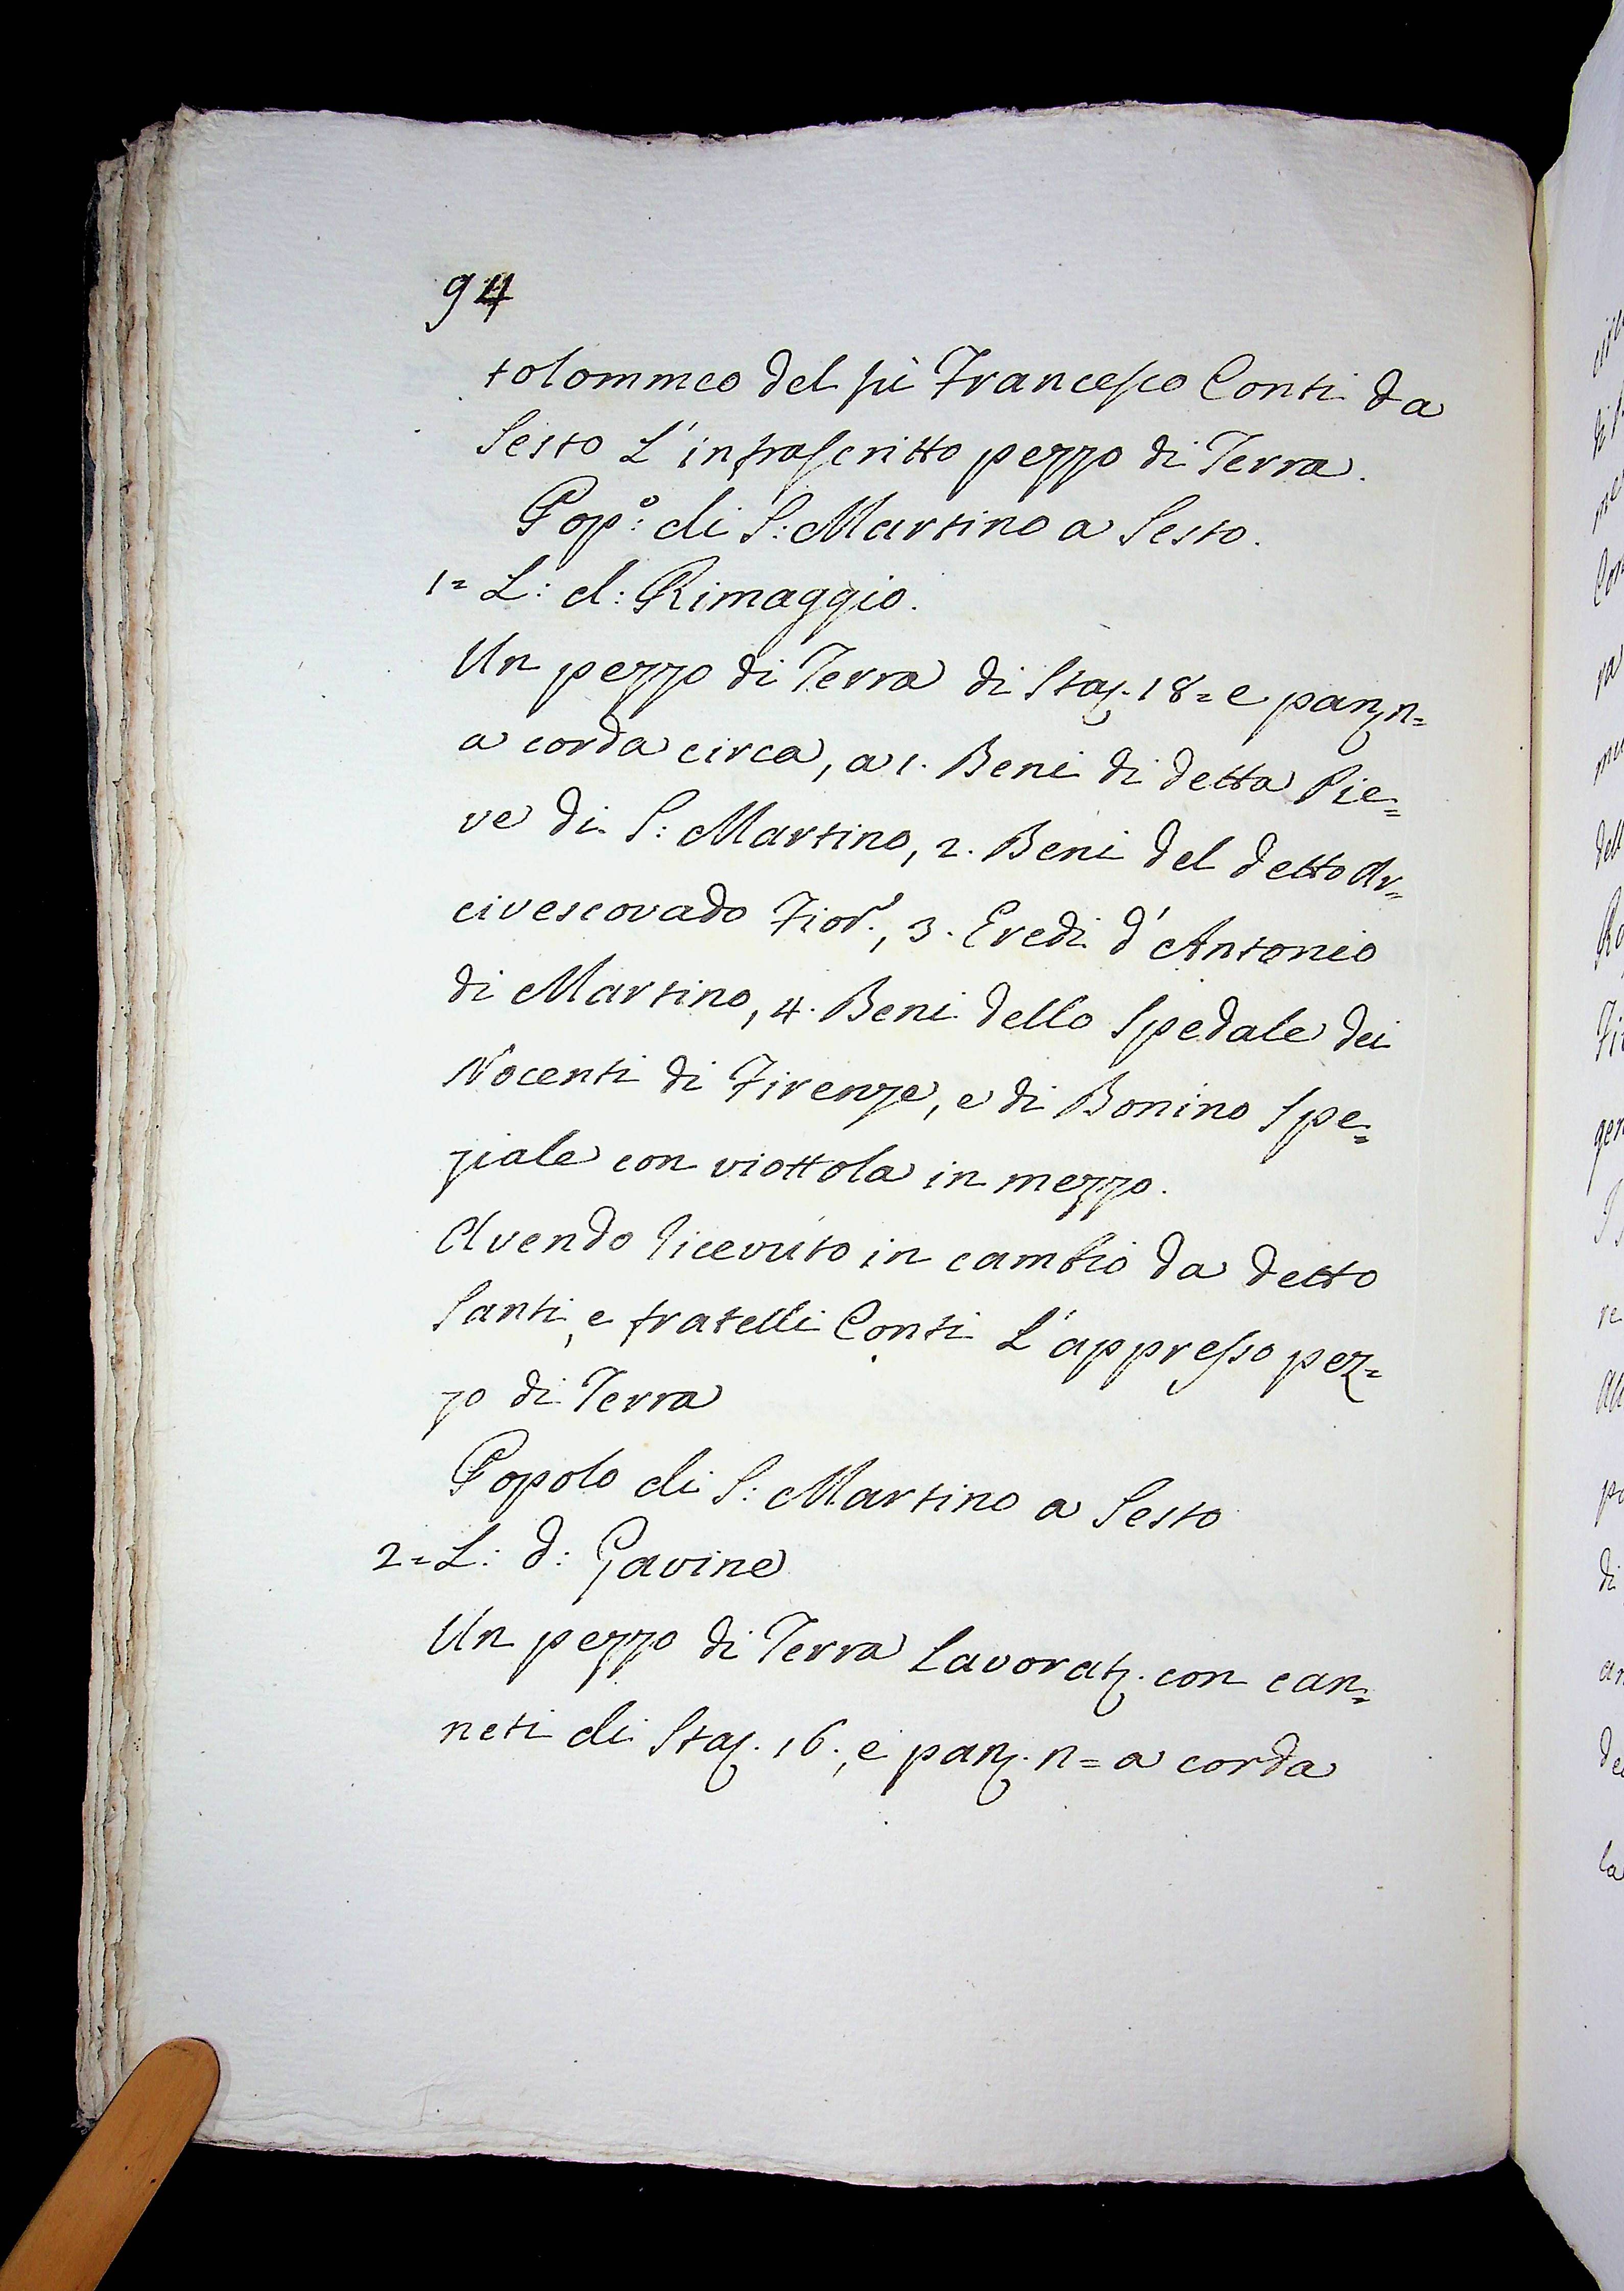 94
tolommeo del fù Francesco Conti da
Sesto L'infrascritto pezzo di Terra.
Pop.º di S: Martino a Sesto.
1= L: d: Rimaggio.
Un pezzo di Terra di Staj. 18= e panj n=
a corda circa, a 1. Beni di detta Pie=
ve di S: Martino, 2. Beni del detto Ar=
civescovado Fior., 3. Eredi d'Antonio
di Martino, 4. Beni dello Spedale dei
Nocenti di Firenze, e di Bonino Spe=
ziale con viottola in mezzo.
Avendo ricevuto in cambio da detto
Santi, e fratelli Conti L'appresso pez=
zo di Terra
Popolo di S: Martino a Sesto
2= L: d: Gavine
Un pezzo di Terra Lavorat. con can=
neti di Staj. 16., e panj. n= a corda